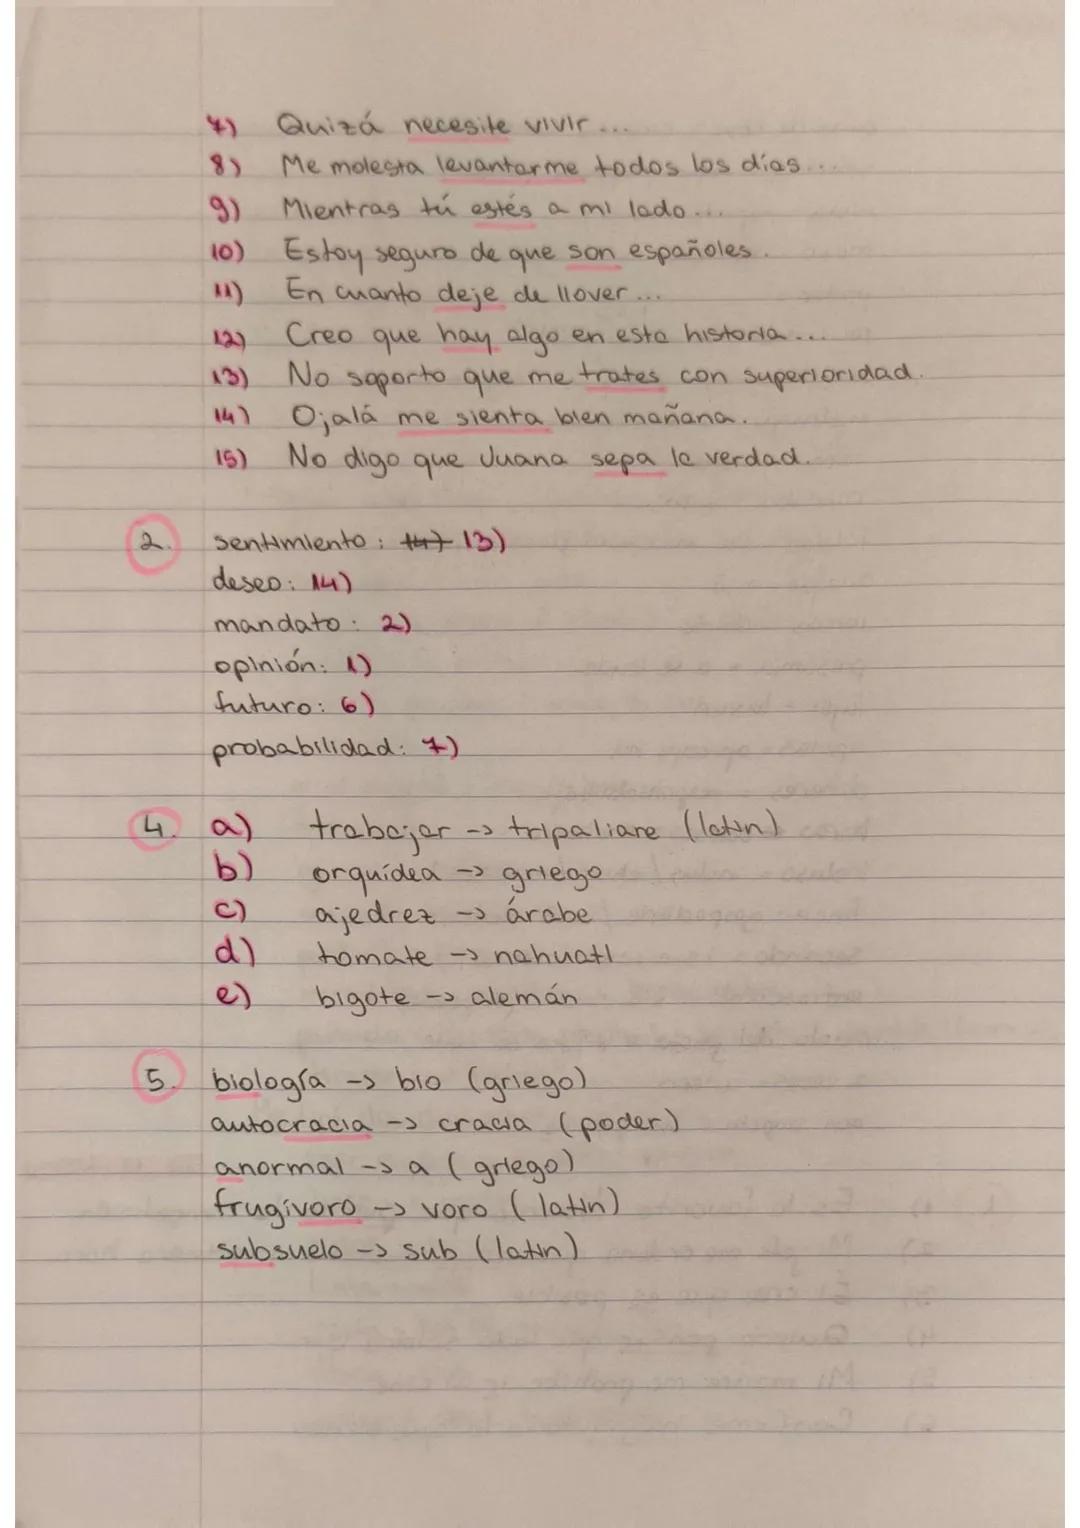 7) Quizá necesite vivir ...
8) Me molesta levantarme todos los días ...
9) Mientras tú estés a mi lado ...
10) Estoy seguro de que son españoles.
11) En cuanto deje de llover ...
12) Creo que hay algo en esta historia ...
13) No soporto que me trates con superioridad.
14) Ojalá me sienta bien mañana.
15) No digo que Juana sepa la verdad.
2. sentimiento: 14) 13)
deseo: 14)
mandato: 2)
opinión: 1)
futuro: 6)
probabilidad: 7)
4. a) trabajar -> tripaliare (latín)
b) orquídea -> griego
c) ajedrez -> árabe
d) tomate -> nahuatl
e) bigote -> alemán
5. biología -> bio (griego)
autocracia -> cracia (poder)
anormal -> a (griego)
frugívoro -> voro (latín)
subsuelo -> sub (latín)